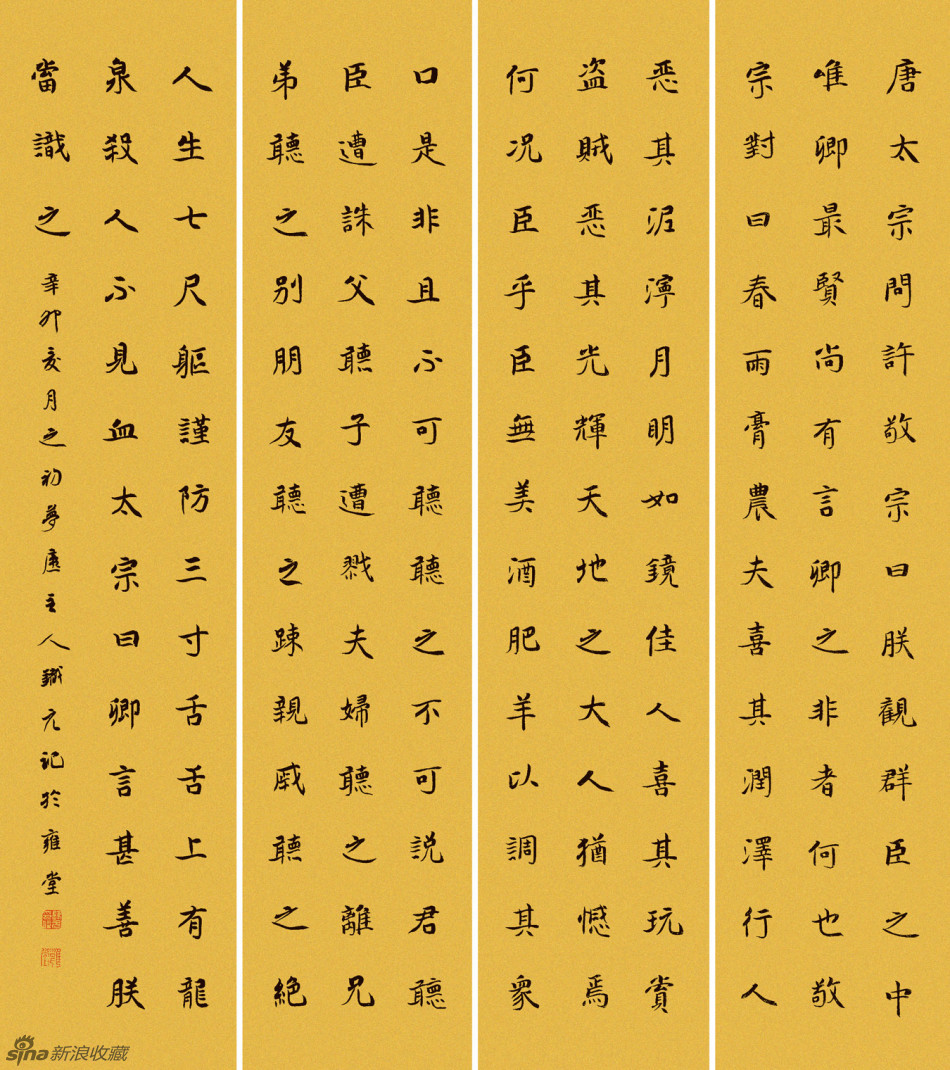 唐太宗問許敬宗曰朕觀群臣之中
唯卿最賢尚有言卿之非者何也敬
宗對曰春雨膏農夫喜其潤澤行人
惡其泥濘月明如鏡佳人喜其玩賞
盜賊惡其光輝天地之大人猶憾焉
何況臣乎臣無美酒肥羊以調其衆
口是非且不可聽聽之不可説君聽
臣遭誅父聽子遭戮夫婦聽之離兄
弟聽之別朋友聽之踈親戚聽之絕
人生七尺軀謹防三寸舌舌上有龍
泉殺人不見血太宗曰卿言甚善朕
當識之
辛卯亥月之初夢廬主人鐵元記於雍堂
sina新浪收藏